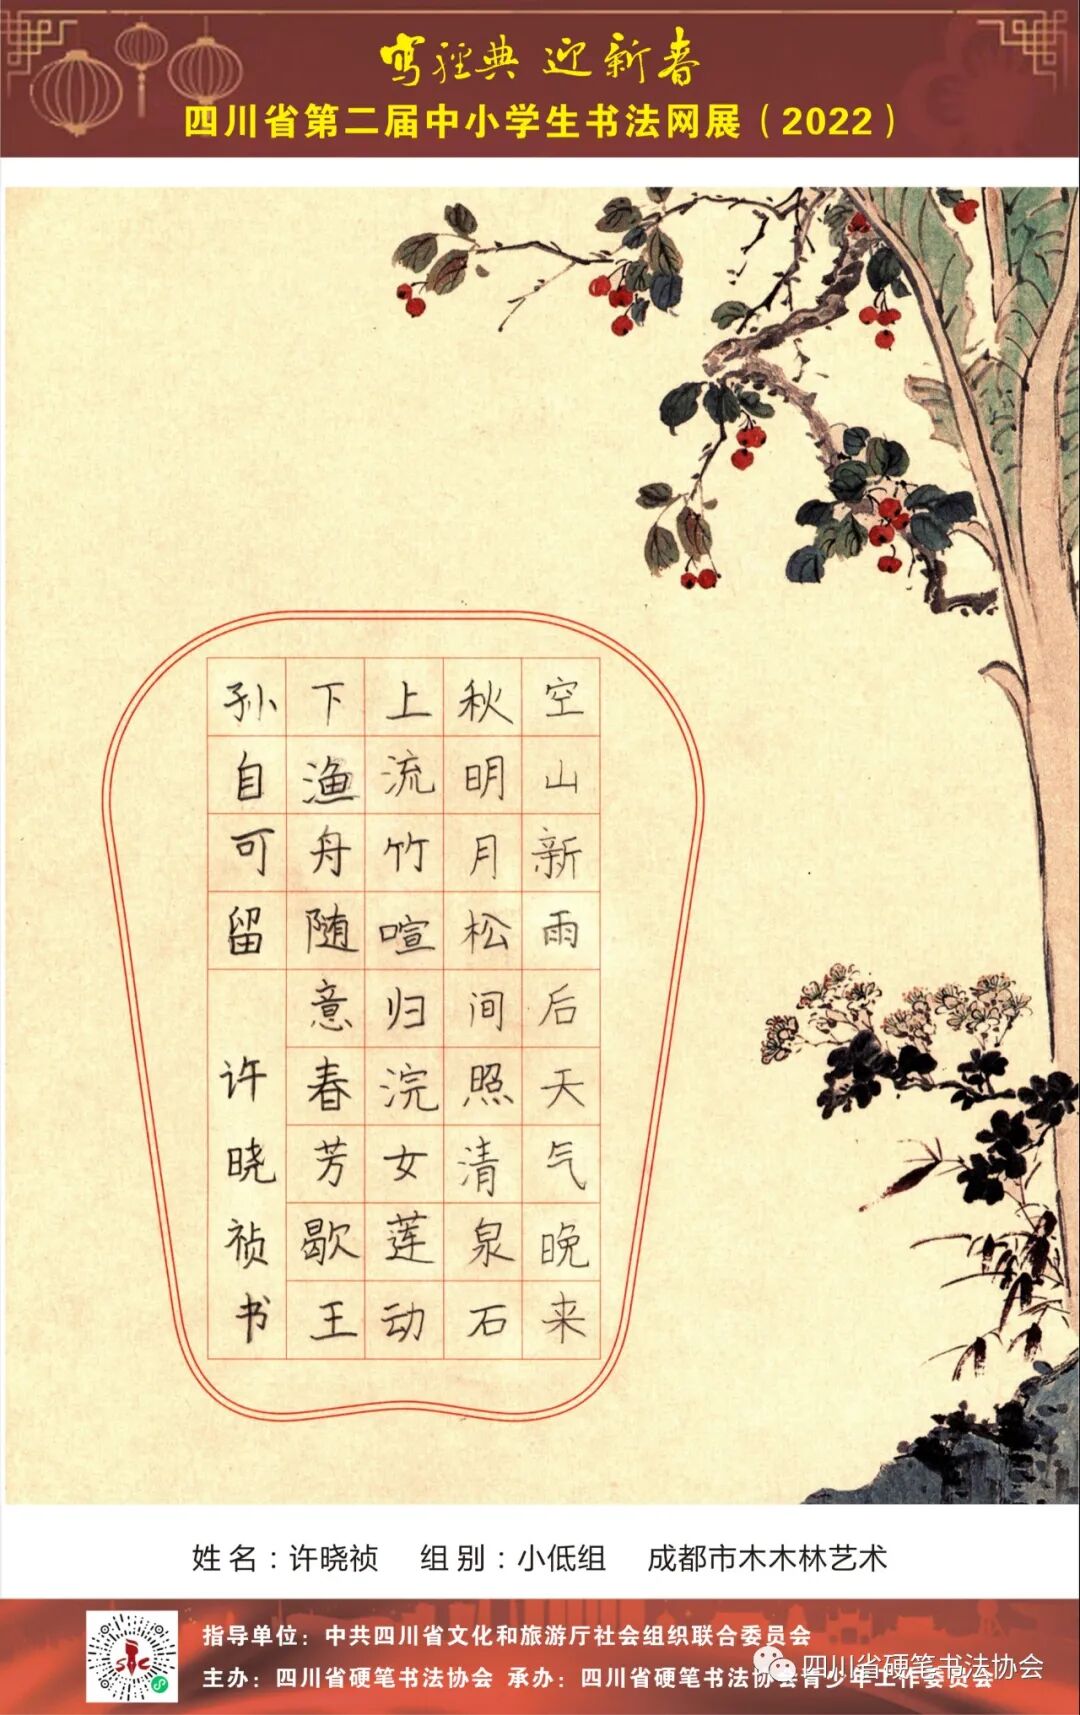 写经典 迎新春
四川省第二届中小学生书法网展（2022）
空山新雨后天气晚来
秋明月松间照清泉石
上流竹喧归浣女莲动
下渔舟随意春芳歇王
孙自可留
许晓祯书
姓名：许晓祯 组别：小低组 成都市木木林艺术
指导单位：中共四川省文化和旅游厅社会组织联合委员会
主办：四川省硬笔书法协会 承办：四川省硬笔书法协会青少年工作委员会
四川省硬笔书法协会